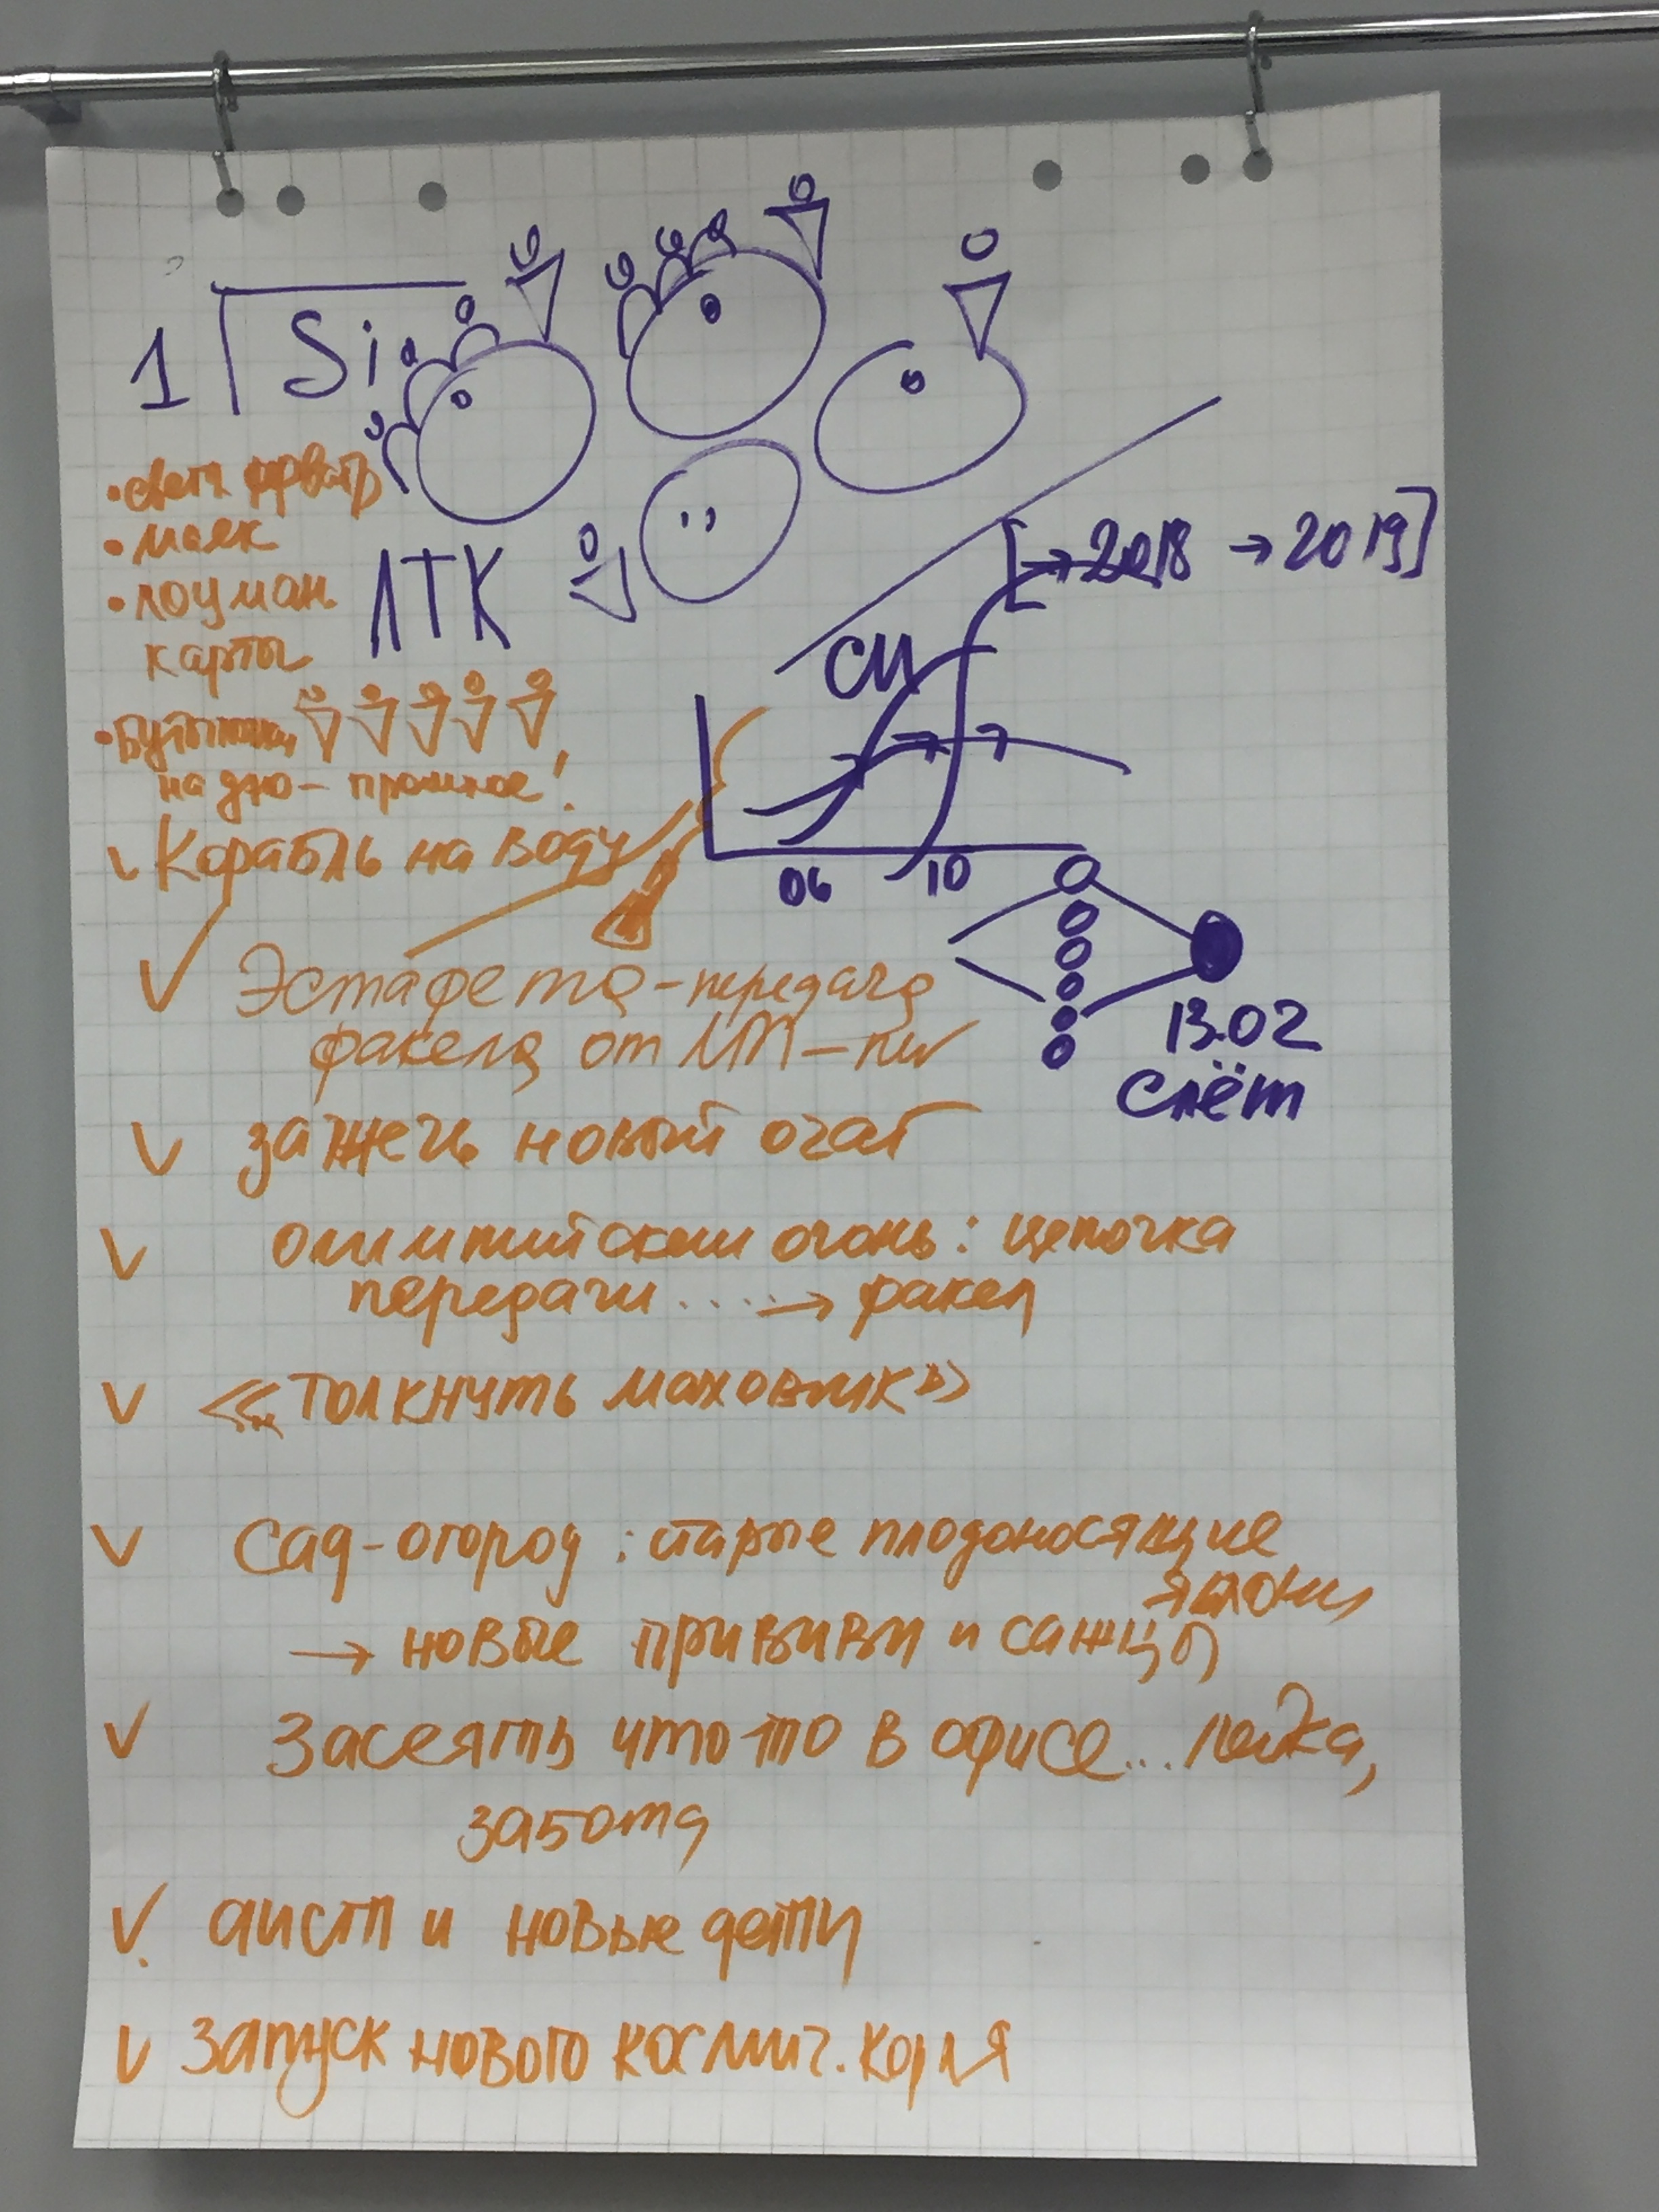 1 Si
маяк
лоцман
карты
ЛТК
[→ 2018 → 2019]
СИ
06 10
на дно - прошлое!
Корабль на воду
Эстафета - передача
факела от
зажечь новый очаг
олимпийский огонь: цепочка
передачи .... → факел
«толкнуть маховик»
13.02
Слёт
Сад-огород: старые плодоносящие
яблони
→ новые прививи и сажцы
Засеять что-то в офисе... лейка,
забота
аист и новые дети
Запуск нового космич. кор ля